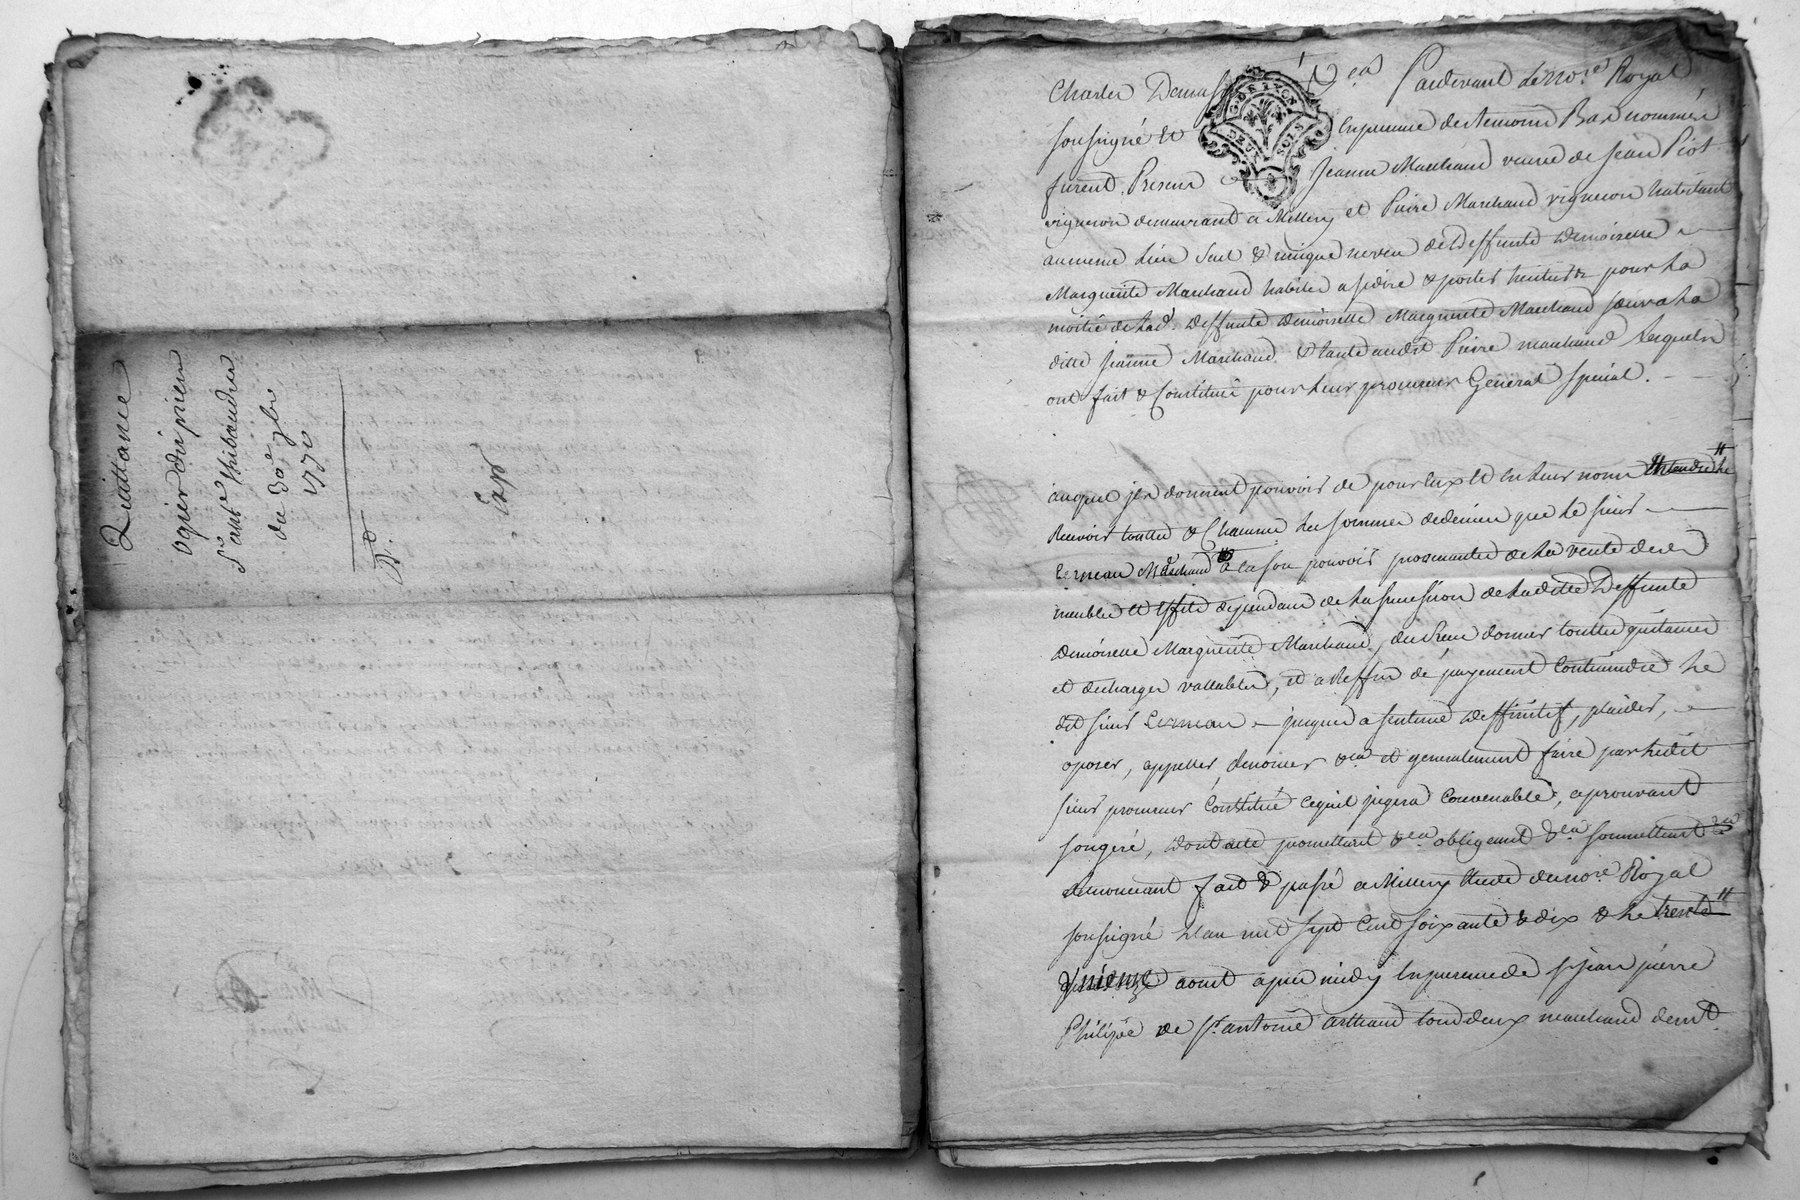 Quittance
ogier du prieur
Sr ant.e thibaudier
du 30e 7bre
1770
Expé
GU. LYON
DEUX SOLS
Charles Demas &ca Pardevant le nore Royal
soussigné et En presence des temoins Bas nommés
furent Presens Jeanne Marchand veuve de Jean Piot
vigneron demeurant a Millery et Pierre Marchand vigneron habitant
au meme Lieu Seul & unique neveu de Deffunte Demoiselle
Marguerite Marchand habiles a se dire & porter heritiers pour La
moitié de Lad. Deffunte demoiselle Marguerite Marchand soeur a La
ditte Jeanne Marchand & tante audit Pierre marchand Lesquels
ont fait & Constitué pour Leur procureur General & special.
auquel ils donnent pouvoir de pour Eux et En Leurs noms
Recevoir touttes & Chacunes Les sommes de deniers que Le sieur
Marchand a En son pouvoir provenantes de La vente des
meubles et Effets dependans de La succession de Laditte Deffunte
demoiselle Marguerite Marchand, du Receu donner touttes quitances
et decharges vallables, et a deffaut de payement Contraindre Le
dit sieur jusques a sentence Deffinitif, plaider,
oposer, appeller, &ca et generalement faire par Ledit
sieur procureur Constitué Ce quil jugera Convenable, aprouvant
sa geré, Dont acte promettant &ca obligeant &ca soumettant &ca
Renoncant fait & passé a Millery Etude du nore Royal
soussigné L'an mil sept Cent soixante & dix & Le trente
aout apres midy En presence de Sr jean pierre
Philipe & de Sr antoine arthaud tous deux marchand demt